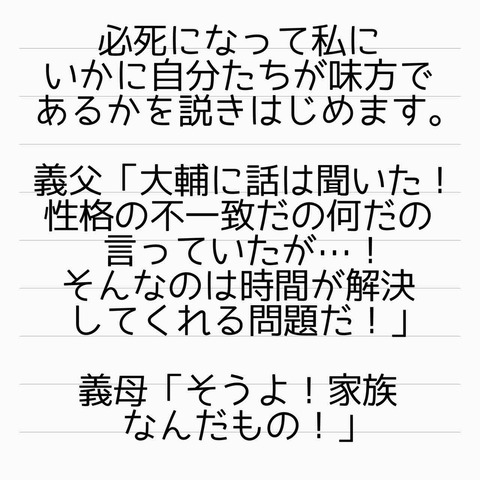 必死になって私に
いかに自分たちが味方で
あるかを説きはじめます。
義父「大輔に話は聞いた！
性格の不一致だの何だの
言っていたが…！
そんなのは時間が解決
してくれる問題だ！」
義母「そうよ！家族
なんだもの！」